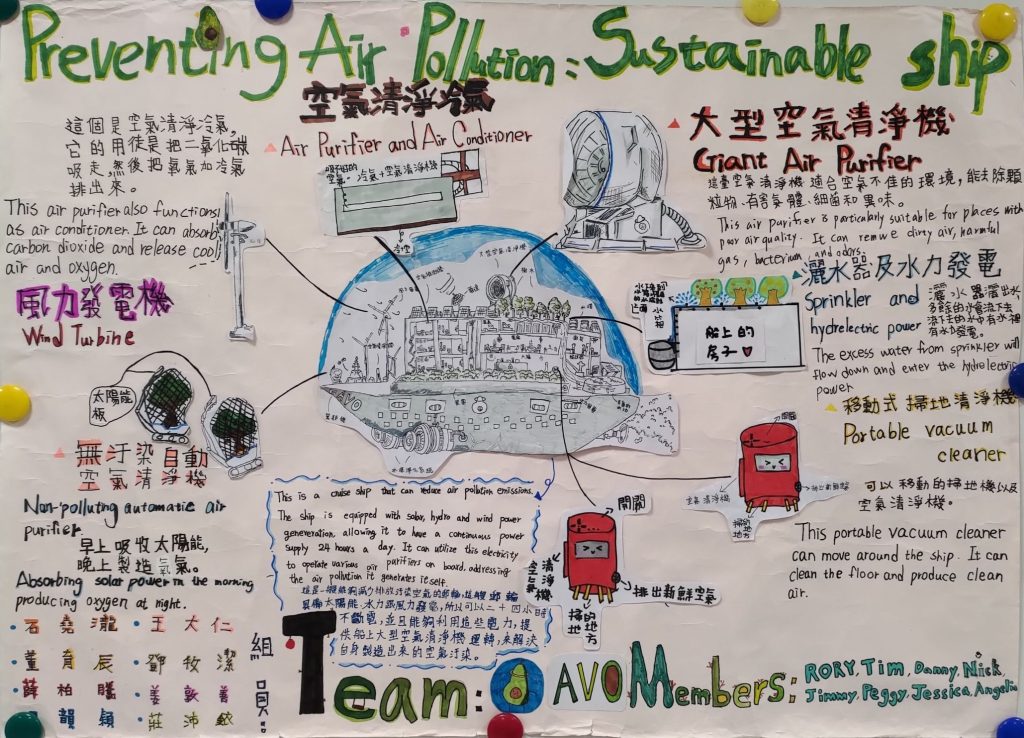 Preventing Air Pollution: Sustainable ship
空氣清淨冷氣
Air Purifier and Air Conditioner
這個是空氣清淨冷氣,
它的用徒是把二氧化碳
吸走,然後把氧氣加冷氣
排出來。
This air purifier also functions
as air conditioner. It can absorb
carbon dioxide and release cool
air and oxygen.
風力發電機
Wind Turbine
太陽能
板
無汙染自動
空氣清淨機
Non-polluting automatic air
purifier
早上吸收太陽能,
晚上製造氧氣。
Absorbing solar power in the morning
producing oxygen at night.
冷氣+空氣清淨機
大型空氣清淨機
Giant Air Purifier
這臺空氣清淨機適合空氣不佳的環境,能去除顆
粒物、有害氣體、細菌和異味。
This air purifier is particularly suitable for places with
poor air quality. It can remove dirty air, harmful
gas, bacterium and odors.
灑水器及水力發電
Sprinkler and
hydrelectric power
灑水器灑出水,
The excess water from sprinkler will
flow down and enter the hydrelectric
power
船上的
房子
移動式掃地清淨機
Portable vacuum
cleaner
可以移動的掃地機以及
空氣清淨機。
This portable vacuum cleaner
can move around the ship. It can
clean the floor and produce clean
air.
開關
空氣清淨機
掃地的地方
排出新鮮空氣
AVO
This is a cruise ship that can reduce air pollution emissions.
The ship is equipped with solar, hydro and wind power
generation, allowing it to have a continuous power
supply 24 hours a day. It can utilize this electricity
to operate various air purifiers on board, addressing
the air pollution it generates itself.
這是一艘能夠減少排放汙染空氣的郵輪,這艘郵輪
具備太陽能、水力跟風力發電,所以可以二十四小時
不斷電,並且能夠利用這些電力,提
供船上大型空氣清淨機運轉,來解決
自身製造出來的空氣汙染。
組員:
石堯瀧 王大仁
董育辰 鄧牧潔
薛柏 姜敦
韻穎 莊沛
Team: AVO Members: RORY, Tim, Danny, Nick,
Jimmy, Peggy, Jessica, Angelin